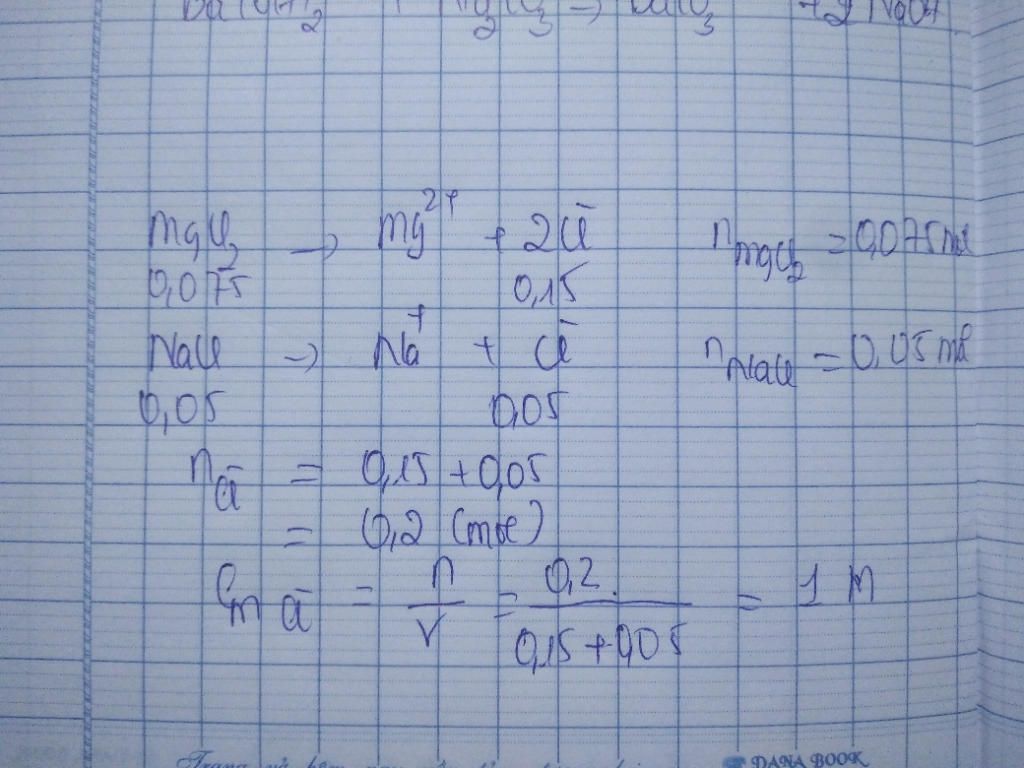 Ba(OH)₂ + Na₂CO₃ → BaCO₃ + 2NaOH
MgCl₂ → Mg²⁺ + 2Cl⁻ n MgCl₂ = 0,075 mol
0,075 0,15
NaCl → Na⁺ + Cl⁻ n NaCl = 0,05 mol
0,05 0,05
n Cl⁻ = 0,15 + 0,05
= 0,2 (mol)
Cm Cl⁻ = n/V = 0,2/(0,15 + 0,05) = 1 M
DANA BOOK